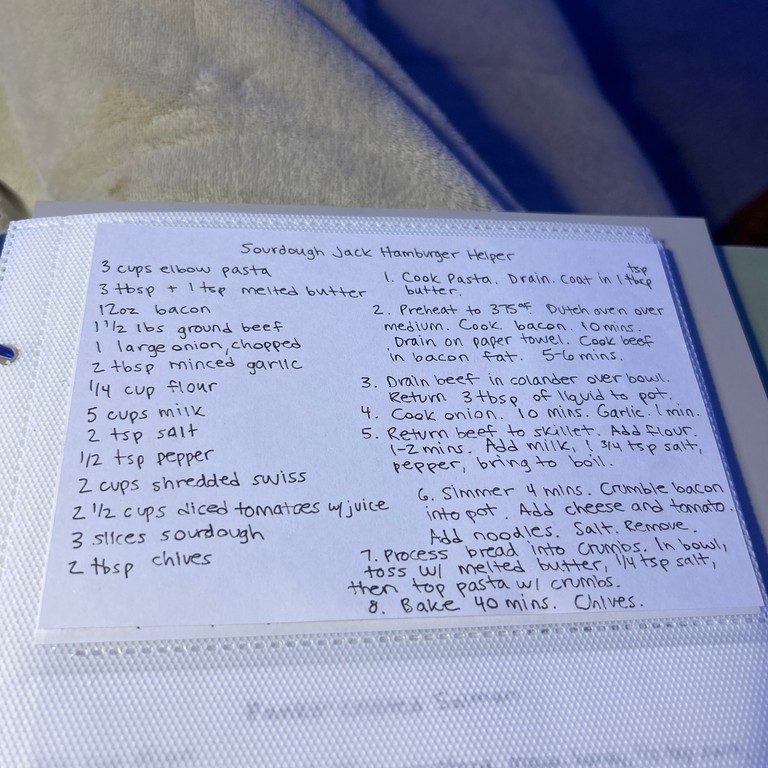 Sourdough Jack Hamburger Helper
3 cups elbow pasta
3 tbsp + 1 tsp melted butter
12oz bacon
1 1/2 lbs ground beef
1 large onion, chopped
2 tbsp minced garlic
1/4 cup flour
5 cups milk
2 tsp salt
1/2 tsp pepper
2 cups shredded swiss
2 1/2 cups diced tomatoes w/juice
3 slices sourdough
2 tbsp chives
1. Cook Pasta. Drain. Coat in 1 tsp
butter.
2. Preheat to 375°F. Dutch oven over
medium. Cook bacon. 10 mins.
Drain on paper towel. Cook beef
in bacon fat. 5-6 mins.
3. Drain beef in colander over bowl.
Return 3 tbsp of liquid to pot.
4. Cook onion. 10 mins. Garlic. 1 min.
5. Return beef to skillet. Add flour.
1-2 mins. Add milk, 1 3/4 tsp salt,
pepper, bring to boil.
6. Simmer 4 mins. Crumble bacon
into pot. Add cheese and tomato.
Add noodles. Salt. Remove.
7. Process bread into crumbs. In bowl,
toss w/ melted butter, 1/4 tsp salt,
then top pasta w/ crumbs.
8. Bake 40 mins. Chives.
Salmon